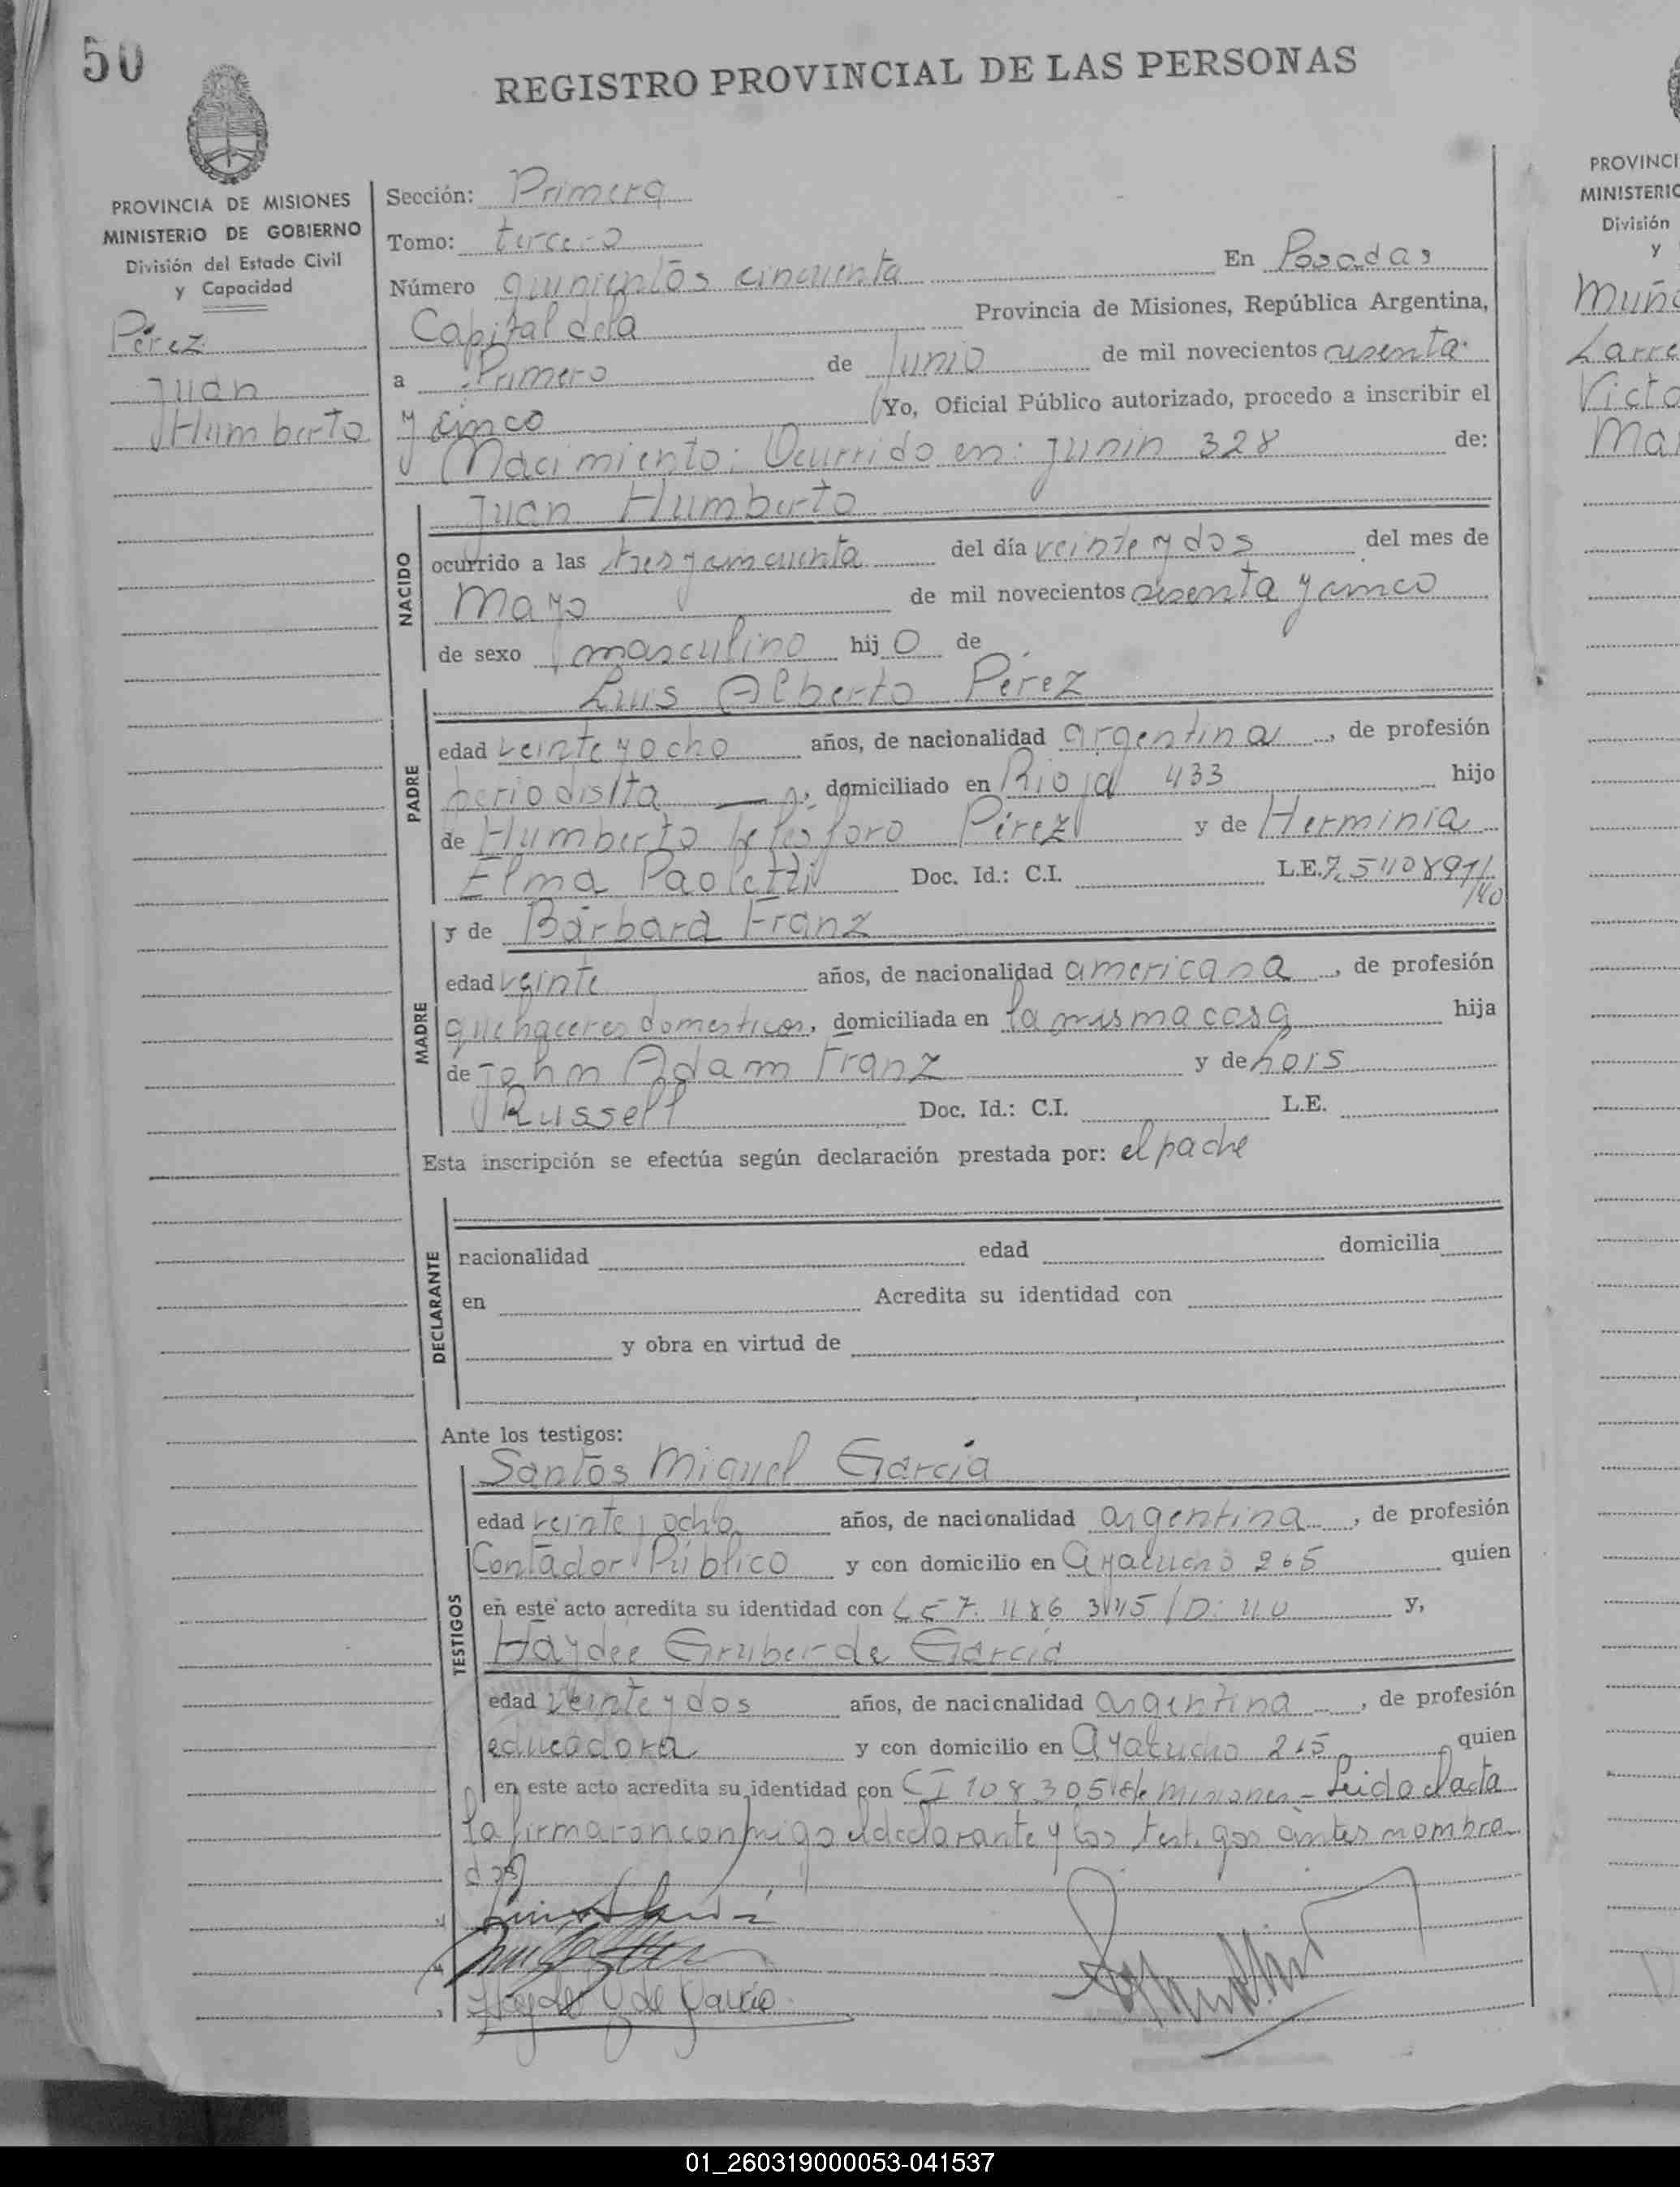 50
REGISTRO PROVINCIAL DE LAS PERSONAS
PROVINCIA DE MISIONES
MINISTERIO DE GOBIERNO
División del Estado Civil
y Capacidad
Pérez
Juan
Humberto
Sección: Primera
Tomo: tercero
Número quinientos cincuenta En Posadas
Capital de la Provincia de Misiones, República Argentina,
a Primero de Junio de mil novecientos sesenta
y cinco Yo, Oficial Público autorizado, procedo a inscribir el
Nacimiento: Ocurrido en: Junin 328 de:
NACIDO
Juan Humberto
ocurrido a las tres y cincuenta del día veinte y dos del mes de
Mayo de mil novecientos sesenta y cinco
de sexo masculino hijo de
PADRE
Luis Alberto Pérez
edad veinte y ocho años, de nacionalidad argentina, de profesión
periodista, domiciliado en Rioja 433 hijo
de Humberto Pérez y de Herminia
Elma Paoletti Doc. Id.: C.I. L.E. 7.540891/
/40
MADRE
y de Bárbara Franz
edad veinte años, de nacionalidad americana, de profesión
quehaceres domesticos, domiciliada en la misma casa hija
de John Adam Franz y de Lois
Russell Doc. Id.: C.I. L.E.
Esta inscripción se efectúa según declaración prestada por: el padre
DECLARANTE
racionalidad edad domicilia
en Acredita su identidad con
y obra en virtud de
Ante los testigos:
TESTIGOS
Santos Miguel García
edad veinte y ocho años, de nacionalidad argentina, de profesión
Contador Público y con domicilio en Ayacucho 265 quien
en este acto acredita su identidad con LE 7. y,
Haydée Gruber de García
edad veinte y dos años, de nacionalidad argentina, de profesión
educadora y con domicilio en Ayacucho 265 quien
en este acto acredita su identidad con CI 108305 de Misiones - Leida el acta
la firmaron conmigo el declarante y los testigos antes nombra
dos
PROVINCI
MINISTERIO
División
y
Muñ
Larre
Victo
Mar
01_260319000053-041537